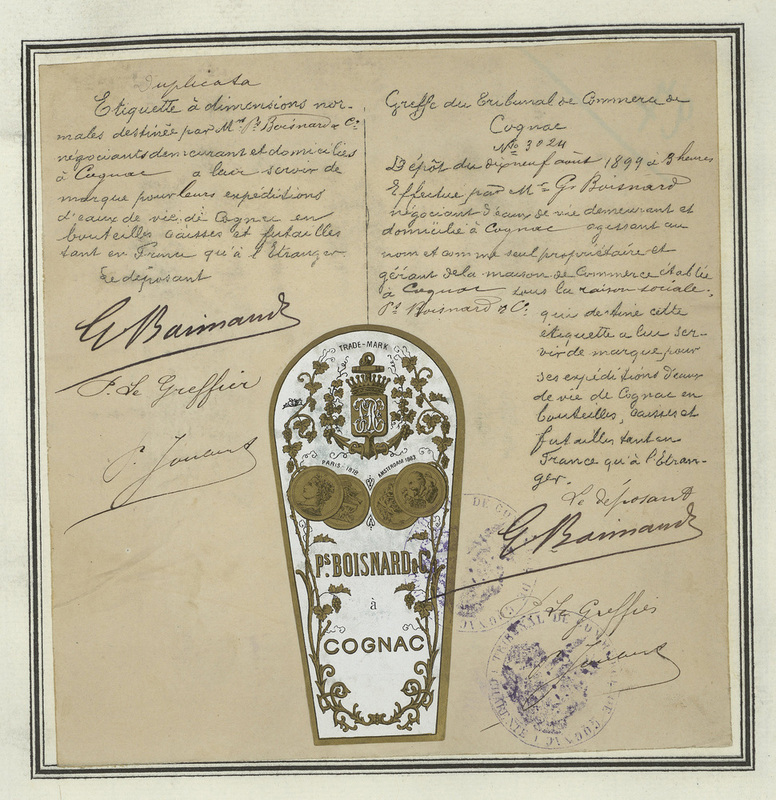 Duplicata
Etiquette à dimensions nor-
males destinée par Mrs Ps Boisnard & Cie
négociants demeurant et domiciliés
à Cognac a leur servir de
marque pour leurs expéditions
d'eaux de vie de Cognac en
bouteilles caisses et futailles
tant en France qu'à l'Etranger
Le déposant
P. Le Greffier
Greffe du Tribunal de Commerce de
Cognac
No 3024
Dépôt du dixneuf août 1899 à 3 heures
Effectué par Mr Gs Boisnard
négociant d'eaux de vie demeurant et
domicilié à Cognac agissant au
nom et comme seul propriétaire et
gérant de la maison de Commerce établie
à Cognac sous la raison sociale:
Ps Boisnard & Cie qui destine cette
étiquette a leur ser-
vir de marque pour
ses expéditions d'eaux
de vie de Cognac en
bouteilles, caisses et
futailles tant en
France qu'à l'Etran-
ger.
Le déposant
P. Le Greffier
TRADE-MARK
PARIS 1878
AMSTERDAM 1883
Ps. BOISNARD & Cie
à
COGNAC
TRIBUNAL DE COMMERCE DE COGNAC (CHARENTE)